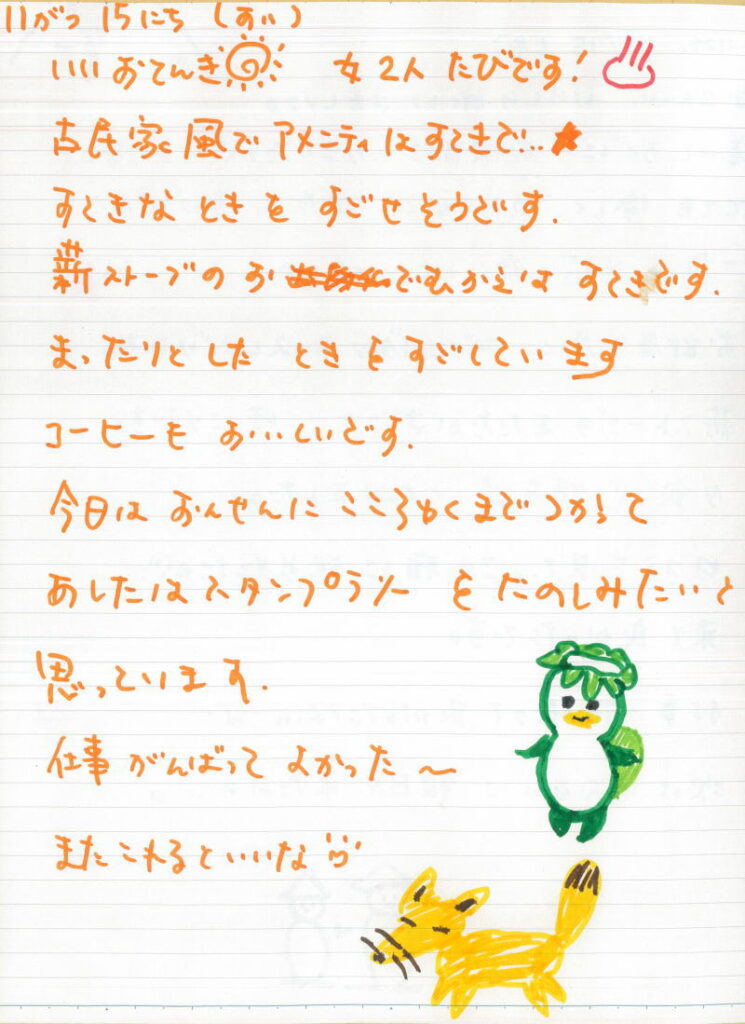 11がつ 15にち (すい)
いいおてんき 女2人 たびです!
古民家風で アメニティは すてきで…
すてきな ときを すごせそうです.
薪ストーブのお でむかえは すてきです.
まったりとした ときをすごしています
コーヒーも おいしいです.
今日は おんせんに こころゆくまで つかって
あしたはスタンプラリー をたのしみたいと
思っています.
仕事 がんばって よかった~
またこれるといいな